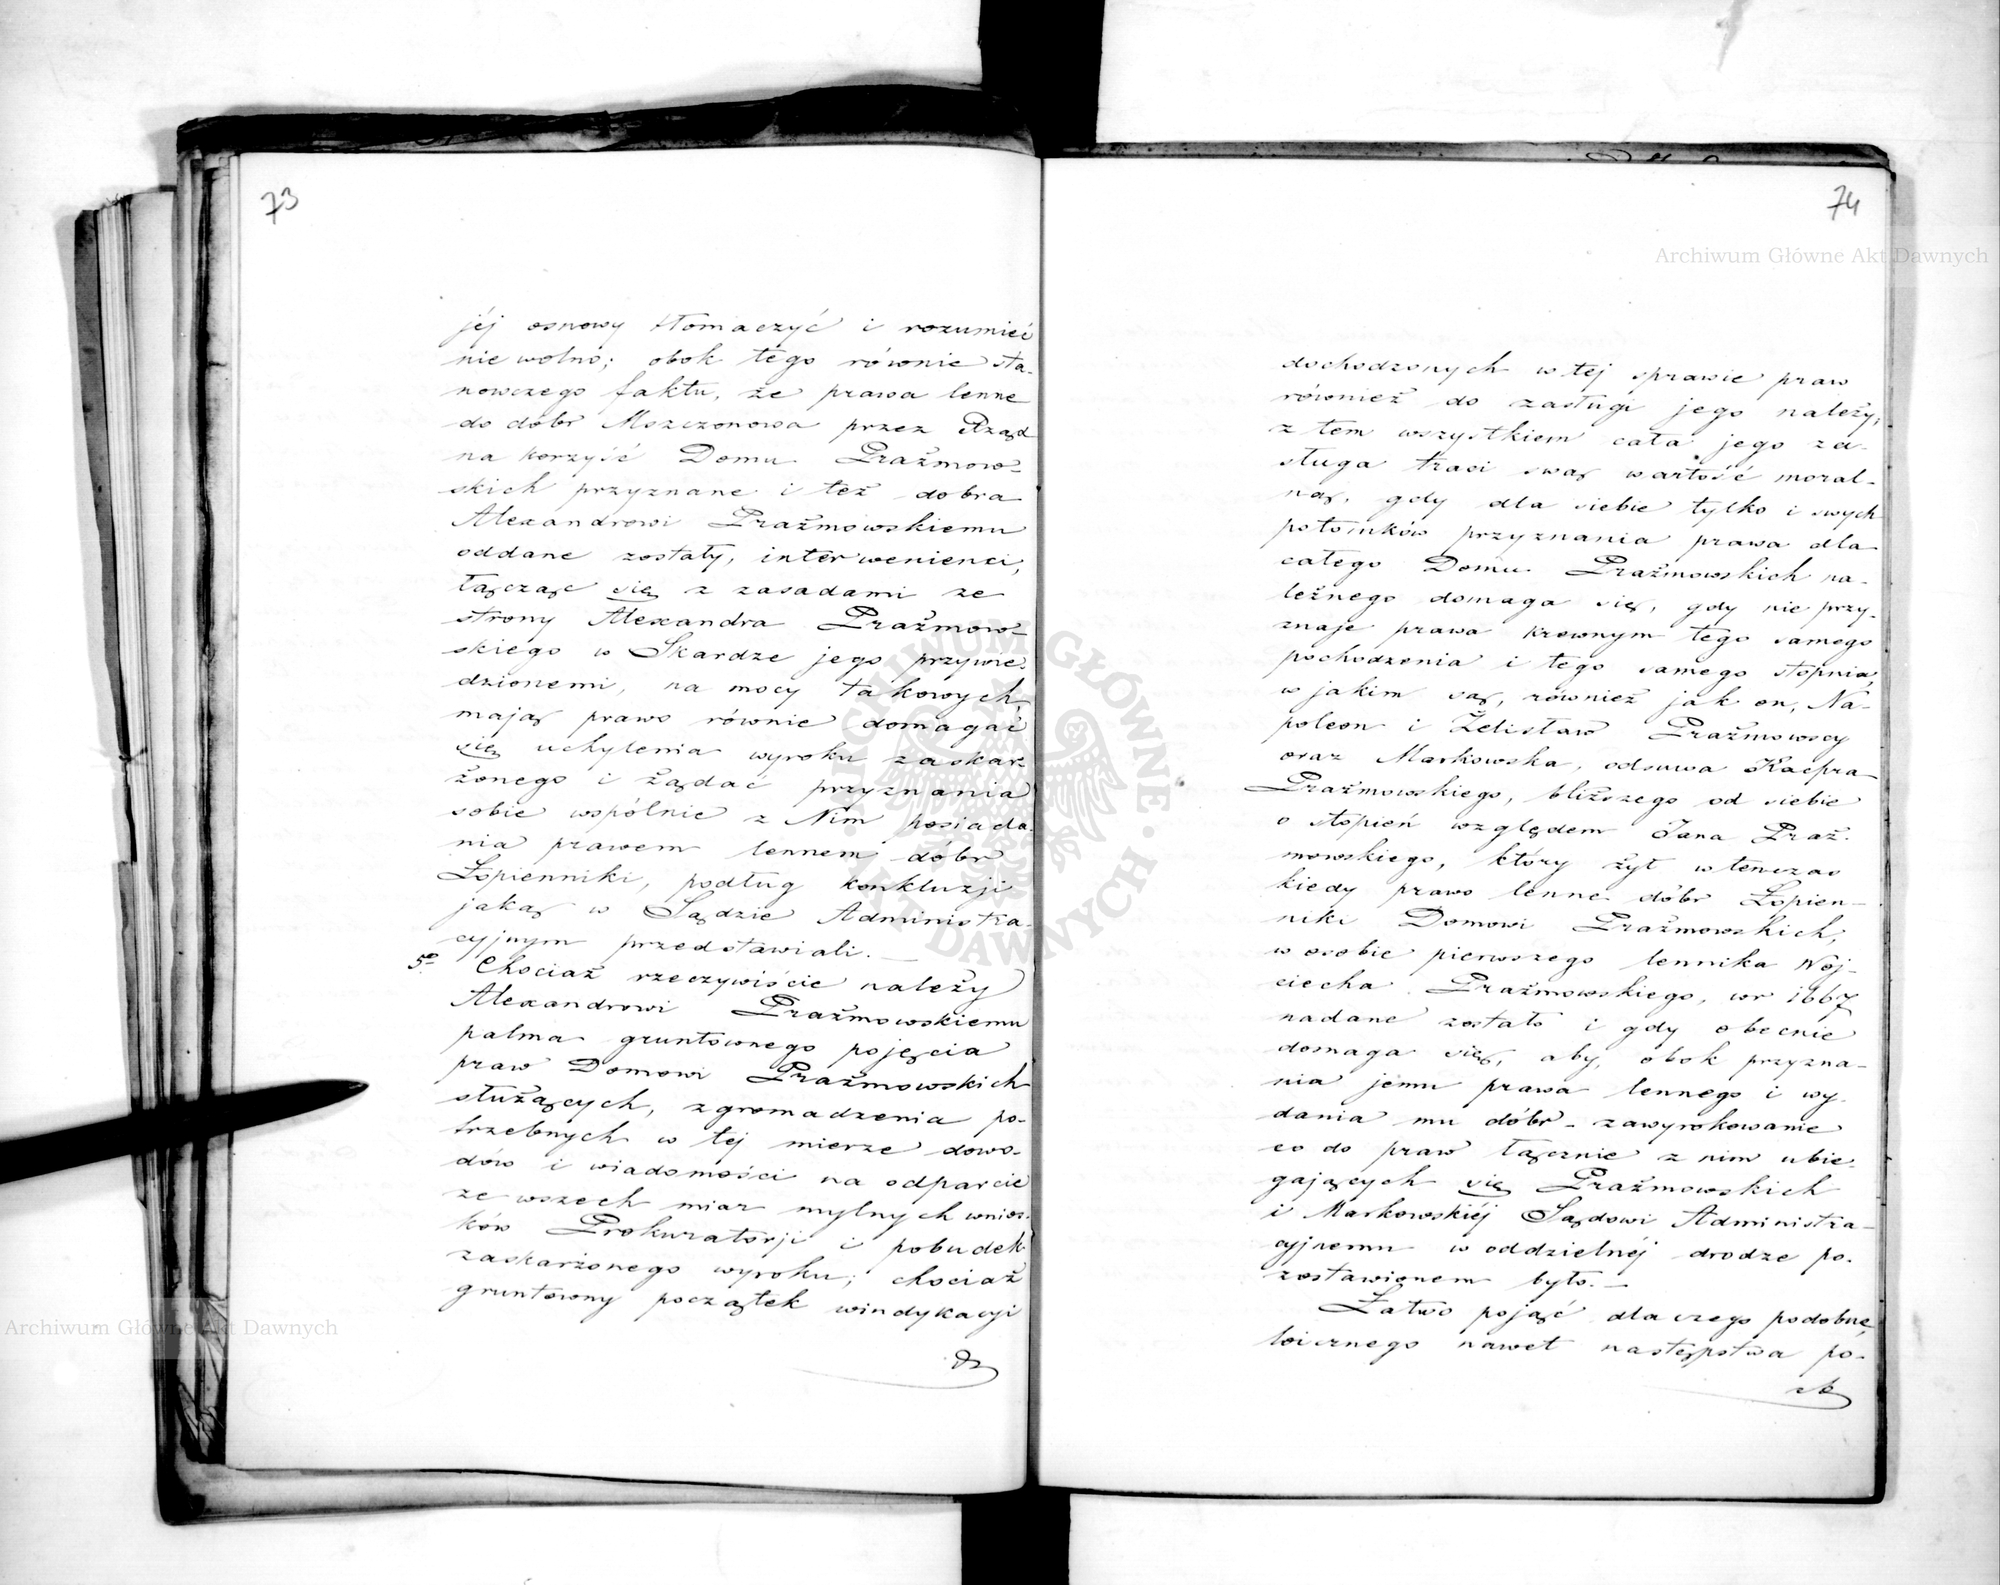 73
jéj osnowy tłomaczyć i rozumieć
nie wolno; obok tego równie sta-
nowczego faktu, że prawa lenne
do dóbr Mszczonowa przez Rząd
na korzyść Domu Prażmow-
skich przyznane i też dobra
Alexandrowi Prażmowskiemu
oddane zostały, interwenienci,
łącząc się z zasadami ze
strony Alexandra Prażmow-
skiego w Skardze jego przywie-
dzionemi, na mocy takowych,
mają prawo równie domagać
się uchylenia wyroku zaskar-
żonego i żądać przyznania
sobie wspólnie z Nim posiada-
nia prawem lennem dóbr
Łopienniki, podług konkluzji
jaką w Sądzie Administra-
cyjnym przedstawiali. —
5o Chociaż rzeczywiście należy
Alexandrowi Prażmowskiemu
palma gruntownego pojęcia
praw Domowi Prażmowskich
służących, zgromadzenia po-
trzebnych w tej mierze dowo-
dów i wiadomości na odparcie
ze wszech miar mylnych wnios-
ków Prokuratorji i pobudek
zaskarżonego wyroku; chociaż
gruntowny początek windykacyi
do
74
dochodzonych w tej sprawie praw
również do zasługi jego należy,
z tem wszystkiem cała jego za-
sługa traci swą wartość moral-
ną, gdy dla siebie tylko i swych
potomków przyznania prawa dla
całego Domu Prażmowskich na-
leżnego domaga się, gdy nie przy-
znaje prawa krewnym tego samego
pochodzenia i tego samego stopnia,
w jakim są, również jak on, Na-
poleon i Żelisław Prażmowscy
oraz Markowska, odsuwa Kacpra
Prażmowskiego, bliższego od siebie
o stopień względem Jana Praż-
mowskiego, który żył wtenczas
kiedy prawo lenne dóbr Łopien-
niki Domowi Prażmowskich,
w osobie pierwszego lennika Woj-
ciecha Prażmowskiego, w r 1667
nadane zostało i gdy obecnie
domaga się, aby, obok przyzna-
nia jemu prawa lennego i wy-
dania mu dóbr - zawyrokowanie
co do praw łącznie z nim ubie-
gających się Prażmowskich
i Markowskiéj Sądowi Administra-
cyjnemu w oddzielnéj drodze po-
zostawionem było. —
Łatwo pojąć dla czego podobne,
loicznego nawet następstwa po-
Archiwum Główne Akt Dawnych
Archiwum Główne Akt Dawnych
ARCHIWUM GŁÓWNE AKT DAWNYCH